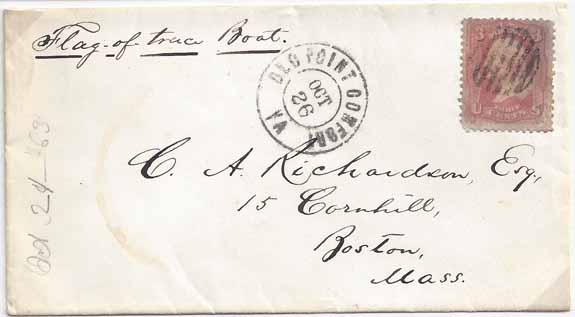 Flag-of-truce Boat.
OLD POINT COMFORT
OCT
26
VA
3
U S
C. A. Richardson, Esq.,
15 Cornhill,
Boston,
Mass.
Oct 24-'63